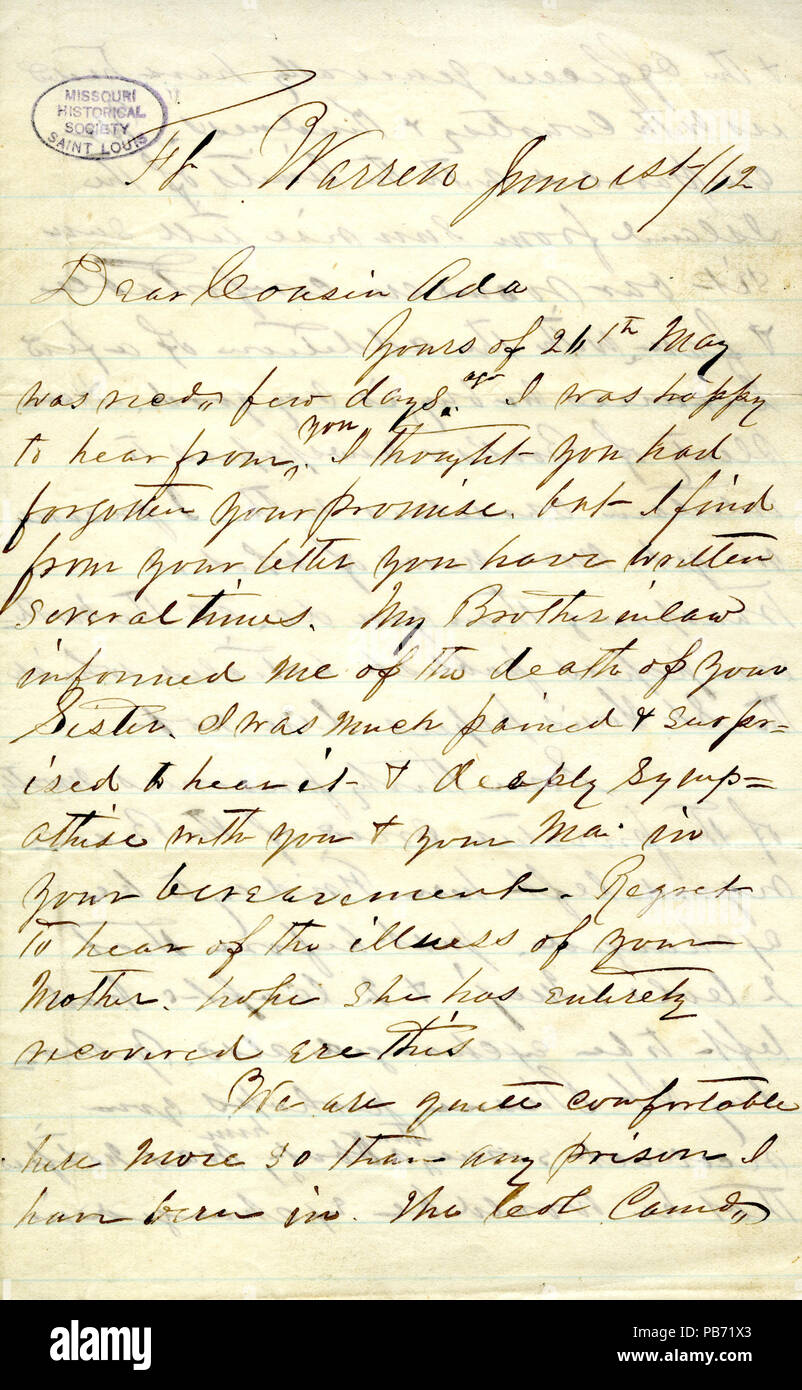 MISSOURI
HISTORICAL
SOCIETY
SAINT LOUIS
Ft Warren June 1st/62
Dear Cousin Ada
Yours of 20th May
was recd,, few days ago. I was happy
to hear from you. I thought you had
forgotten your promise. but I find
from your letter you have written
several times. My Brother in law
informed me of the death of your
Sister. I was much pained & surpr=
ised to hear it & deeply symp=
athise with you & your Ma. in
your bereavement. Regret
to hear of the illness of your
Mother. hope she has entirely
recovered ere this
We are quite comfortable
here more so than any prison I
have been in. The Col Comd,,
alamy
alamy stock photo
PB71X3
www.alamy.com